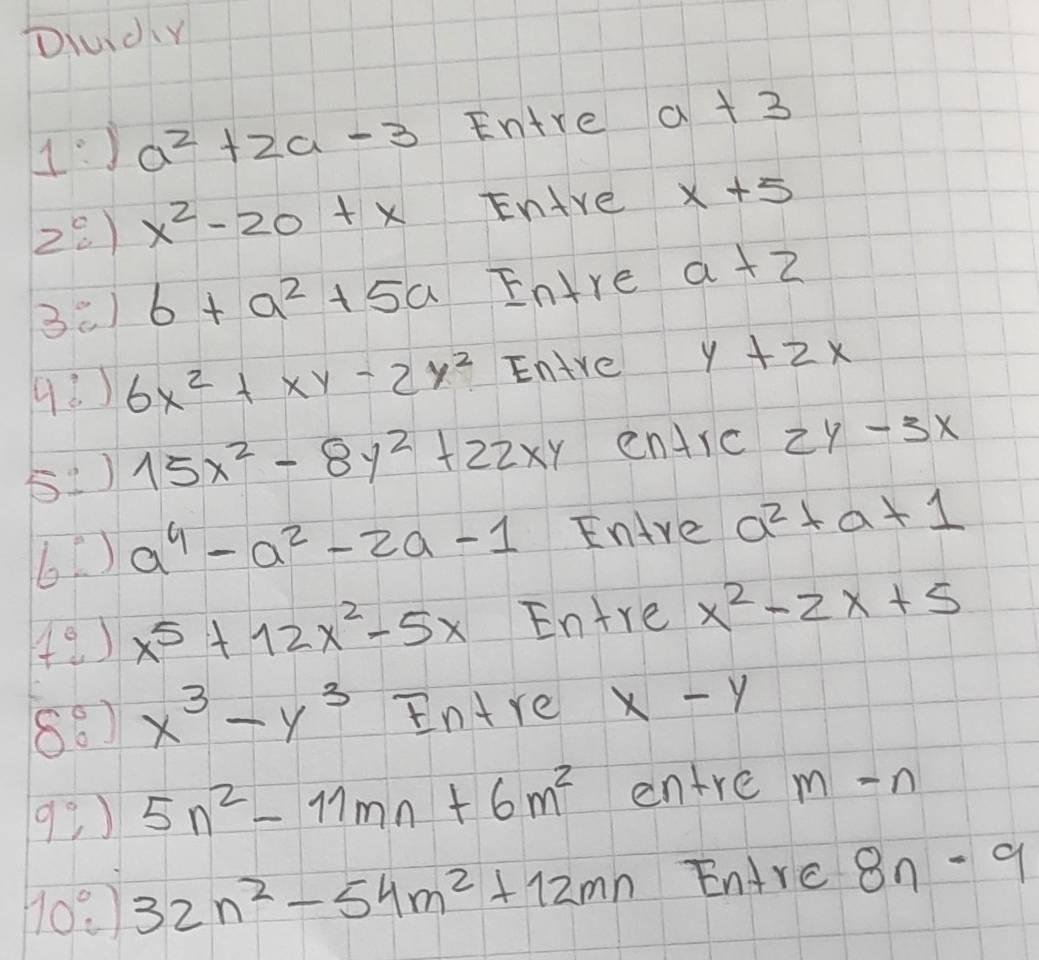 Dividir
1:) a² + 2a - 3 Entre a + 3
2:) x² - 20 + x Entre x + 5
3:) 6 + a² + 5a Entre a + 2
4:) 6x² + xy - 2y² Entre y + 2x
5:) 15x² - 8y² + 22xy entre 2y - 3x
6:) a⁴ - a² - 2a - 1 Entre a² + a + 1
7:) x⁵ + 12x² - 5x Entre x² - 2x + 5
8:) x³ - y³ Entre x - y
9:) 5n² - 11mn + 6m² entre m - n
10:) 32n² - 54m² + 12mn Entre 8n - 9